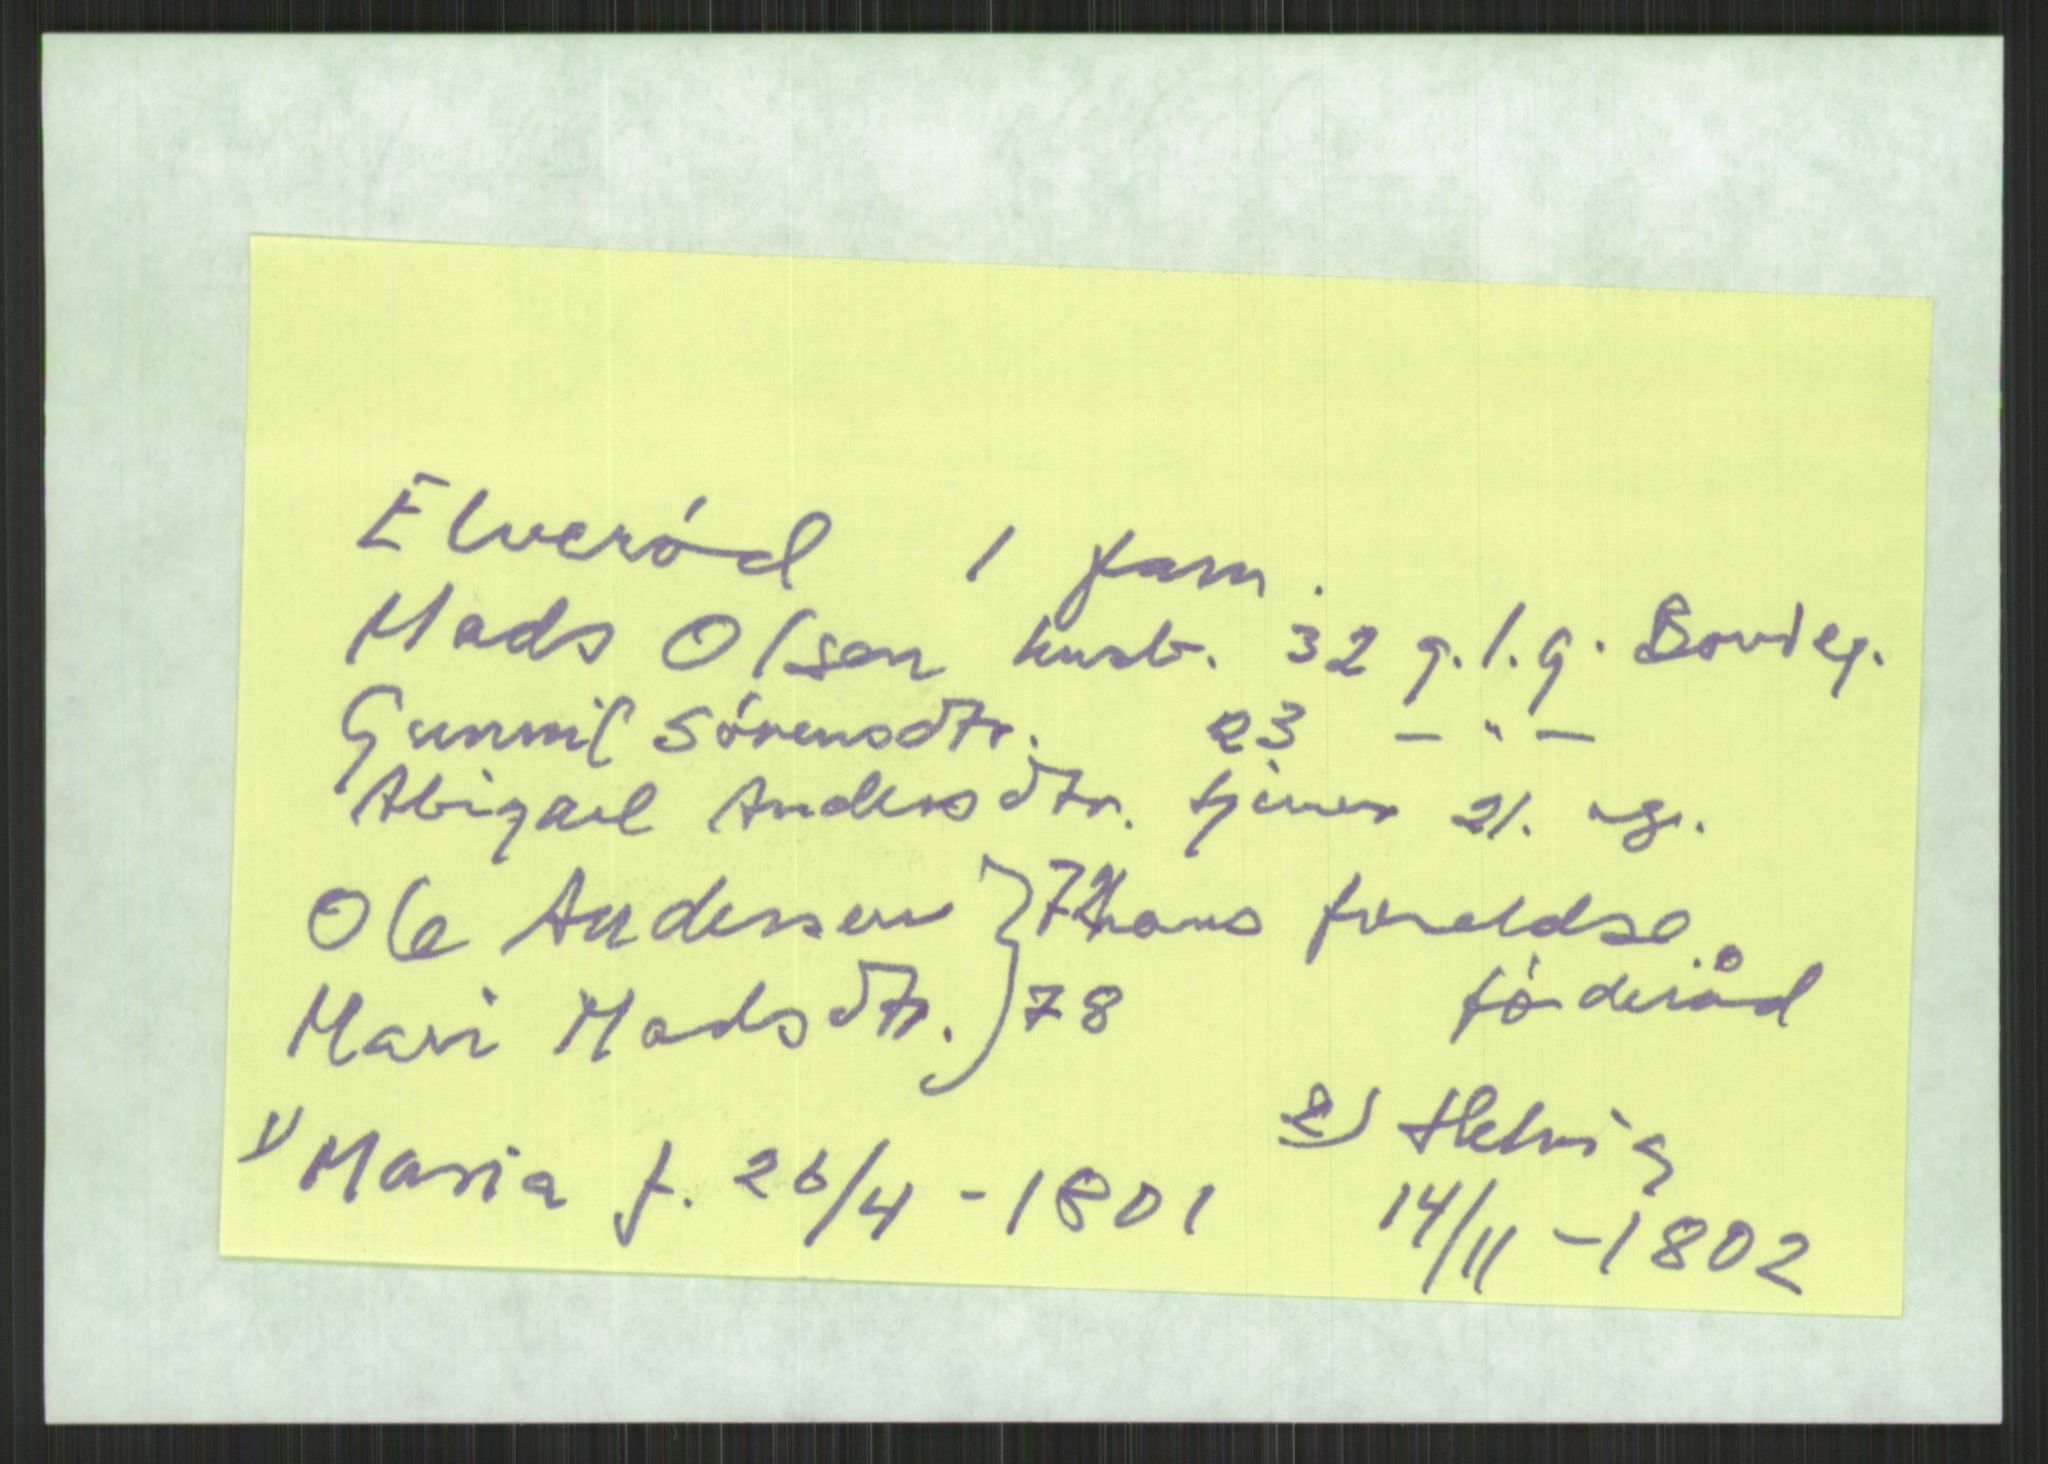 Elveród 1 fam.
Mads Olsen husb. 32 g.1.g. Bonde
Gunnil Sórensdtr. 23 — " —
Abigael Andersdtr. tjener 21. ug.
Ole Anderssen } 72 hans foreldre
Mari Madsdtr. } 78 fóderåd
1) Maria f. 26/4 - 1801
2) Helvig
14/11 - 1802